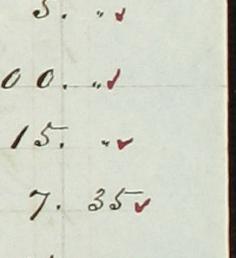 5. " ✓
00. " ✓
15. " ✓
7. 35 ✓